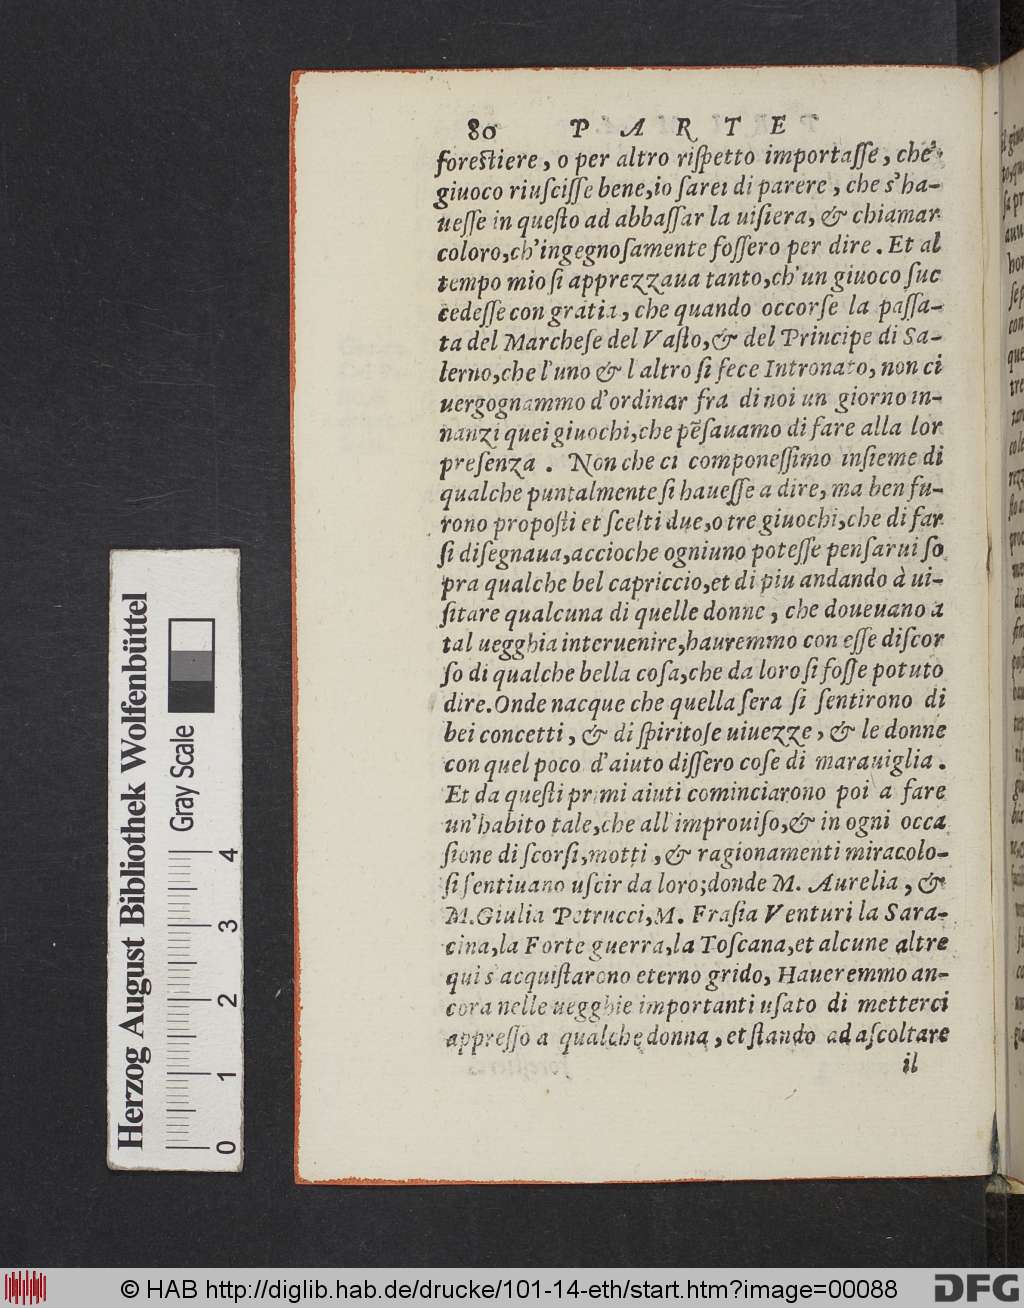 80 PARTE
forestiere, o per altro riſpetto importaſſe, che'l
giuoco riuſciſſe bene,io ſarei di parere, che s'ha-
ueſſe in queſto ad abbaſſar la uiſiera, & chiamar
coloro,ch'ingegnoſamente foſſero per dire. Et al
tempo mio ſi apprezzaua tanto,ch'un giuoco ſuc
cedeſſe con gratia, che quando occorſe la paſſa-
ta del Marcheſe del Vaſto,& del Principe di Sa-
lerno,che l'uno & l altro ſi fece Intronato, non ci
uergognammo d'ordinar fra di noi un giorno in-
nanzi quei giuochi,che pẽſauamo di fare alla lor
preſenza. Non che ci componeſſimo inſieme di
qualche puntalmente ſi haueſſe a dire, ma ben fu-
rono propoſti et ſcelti due,o tre giuochi,che di far
ſi diſegnaua,accioche ogniuno poteſſe penſarui ſo
pra qualche bel capriccio,et di piu andando à ui-
ſitare qualcuna di quelle donne, che doueuano a
tal uegghia interuenire,hauremmo con eſſe diſcor
ſo di qualche bella coſa,che da loro ſi foſſe potuto
dire.Onde nacque che quella ſera ſi ſentirono di
bei concetti, & di ſpiritoſe uiuezze, & le donne
con quel poco d'aiuto diſſero coſe di marauiglia.
Et da queſti primi aiuti cominciarono poi a fare
un'habito tale,che all'improuiſo,& in ogni occa
ſione di ſcorſi,motti, & ragionamenti miracolo-
ſi ſentiuano uſcir da loro;donde M. Aurelia, &
M.Giulia Petrucci,M. Fraſia Venturi la Sara-
cina,la Forte guerra,la Toſcana,et alcune altre
qui s acquiſtarono eterno grido, Haueremmo an-
cora nelle uegghie importanti uſato di metterci
appreſſo a qualche donna, et ſtando ad aſcoltare
il
Herzog August Bibliothek Wolfenbüttel
Gray Scale
0 1 2 3 4
© HAB http://diglib.hab.de/drucke/101-14-eth/start.htm?image=00088
DFG